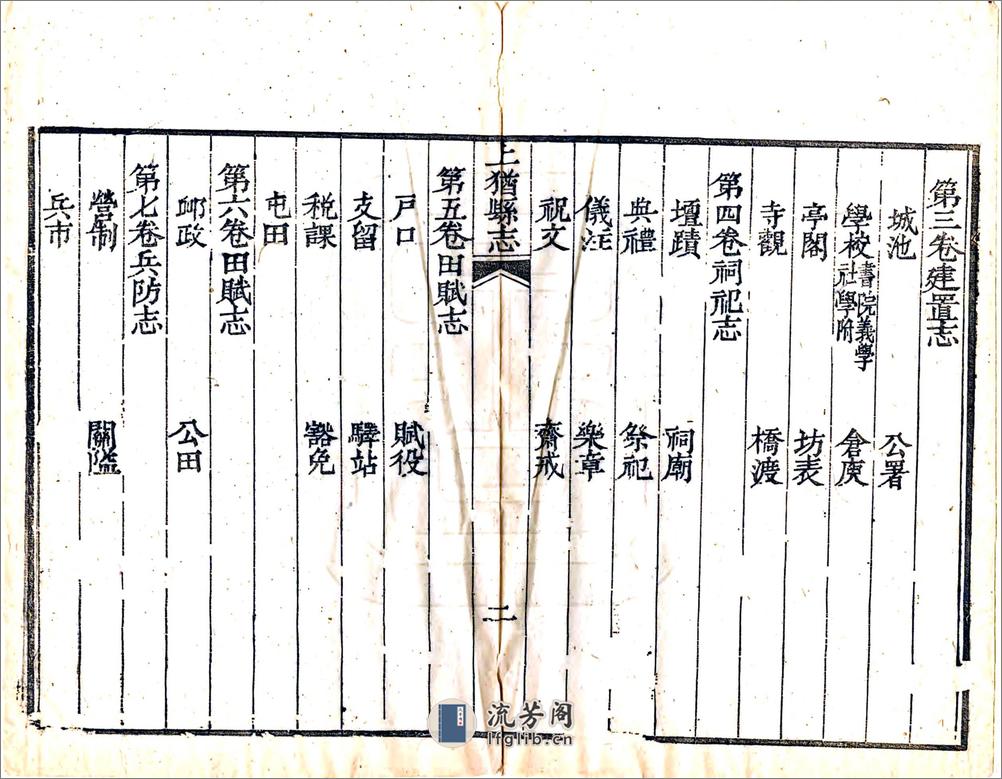 第三卷建置志
城池 公署
學校 書院義學社學附 倉庾
亭閣 坊表
寺觀 橋渡
第四卷祠祀志
壇蹟 祠廟
典禮 祭祀
儀注 樂章
祝文 齋戒
上猶縣志 二
第五卷田賦志
戸口 賦役
支留 驛站
税課 豁免
屯田
第六卷田賦志
邮政 公田
第七卷兵防志
營制 關隘
兵市
流芳阁
lfglib.cn